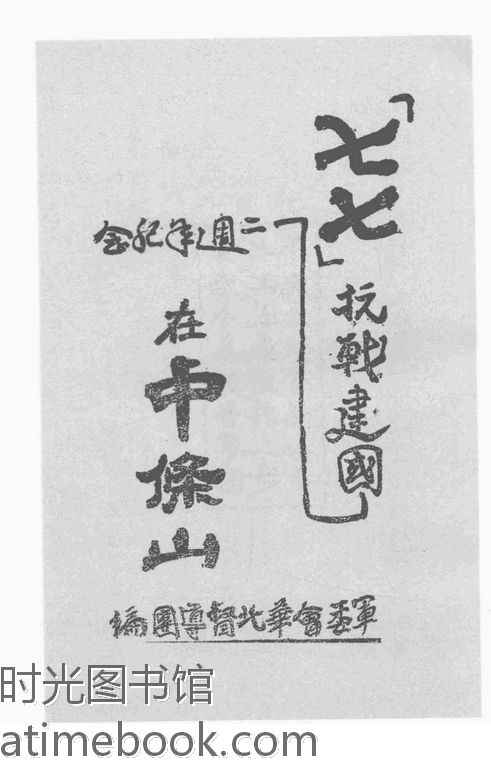 「七七」
抗戰建國
二週年紀念
在中條山
軍委會華北督導團編
时光图书馆
atimebook.com